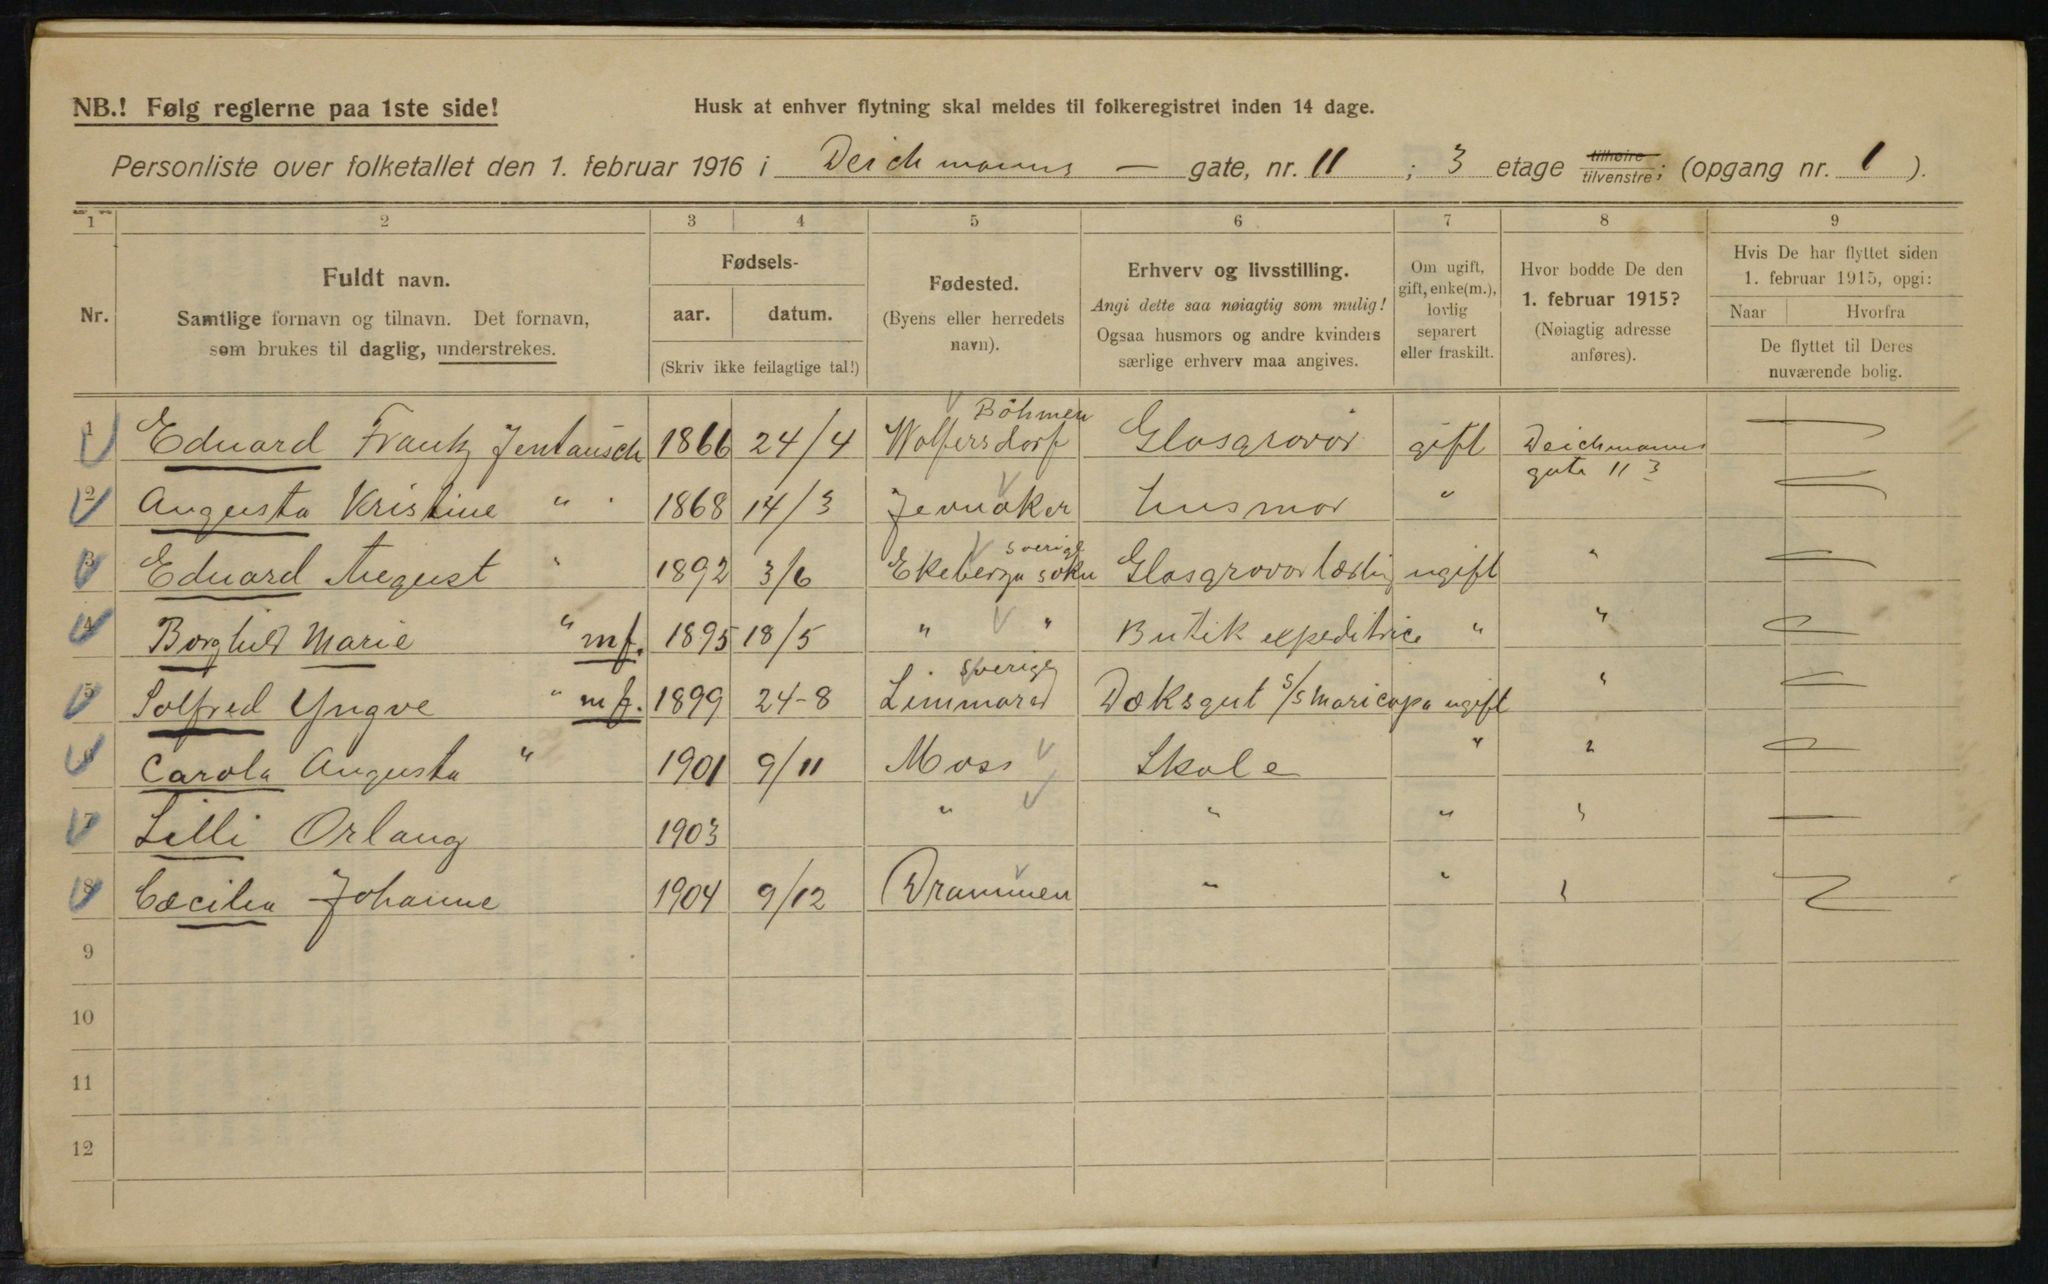 NB.! Følg reglerne paa 1ste side!
Husk at enhver flytning skal meldes til folkeregistret inden 14 dage.
Personliste over folketallet den 1. februar 1916 i Deichmanns — gate, nr. 11 ; 3 etage tilhøire tilvenstre; (opgang nr. 1 ).
1 2 3 4 5 6 7 8 9
Nr.
Fuldt navn.
Samtlige fornavn og tilnavn. Det fornavn,
som brukes til daglig, understrekes.
Fødsels-
aar. datum.
(Skriv ikke feilagtige tal!)
Fødested.
(Byens eller herredets
navn).
Erhverv og livsstilling.
Angi dette saa nøiagtig som mulig!
Ogsaa husmors og andre kvinders
særlige erhverv maa angives.
Om ugift,
gift, enke(m.),
lovlig
separert
eller fraskilt.
Hvor bodde De den
1. februar 1915?
(Nøiagtig adresse
anføres).
Hvis De har flyttet siden
1. februar 1915, opgi:
Naar Hvorfra
De flyttet til Deres
nuværende bolig.
1 Eduard Frantz Jentausch 1866 24/4 Böhmen Wolfersdorf Glasgravør gift Deichmanns gate 11 3
2 Augusta Kristine " 1868 14/3 Jevnaker husmor "
3 Eduard August " 1892 3/6 Sverige Ekeberga sokn Glasgravørlærling ugift "
4 Borghild Marie " mf. 1895 18/5 " " Butik expeditrice " "
5 Solfred Yngve " mf. 1899 24-8 Sverige Limmared Dæksgut s/s Maricopa ugift "
6 Carola Augusta " 1901 9/11 Moss Skole " "
7 Lilli Orlaug 1903 " " " "
8 Cæcilia Johanne 1904 9/12 Drammen " " "
9
10
11
12